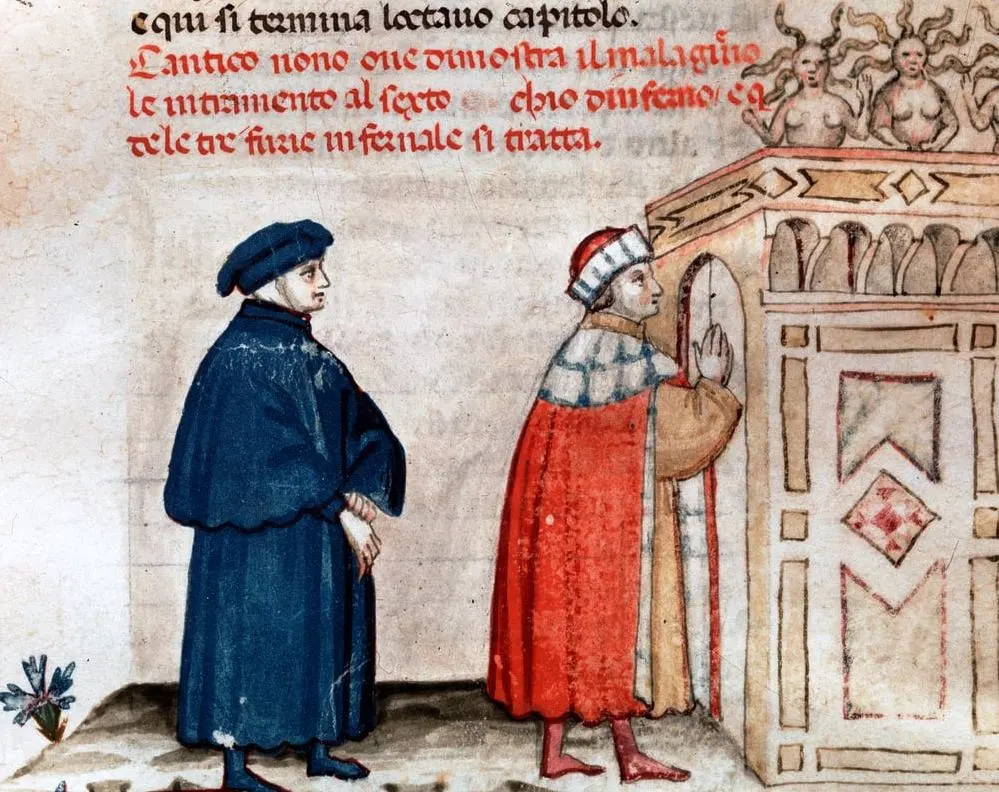 e qui si termina loctauo capitolo.
Cantico nono oue dimostra il malageuo
le intramento al sexto chio dinferno e q
te le tre furie infernale si tratta.